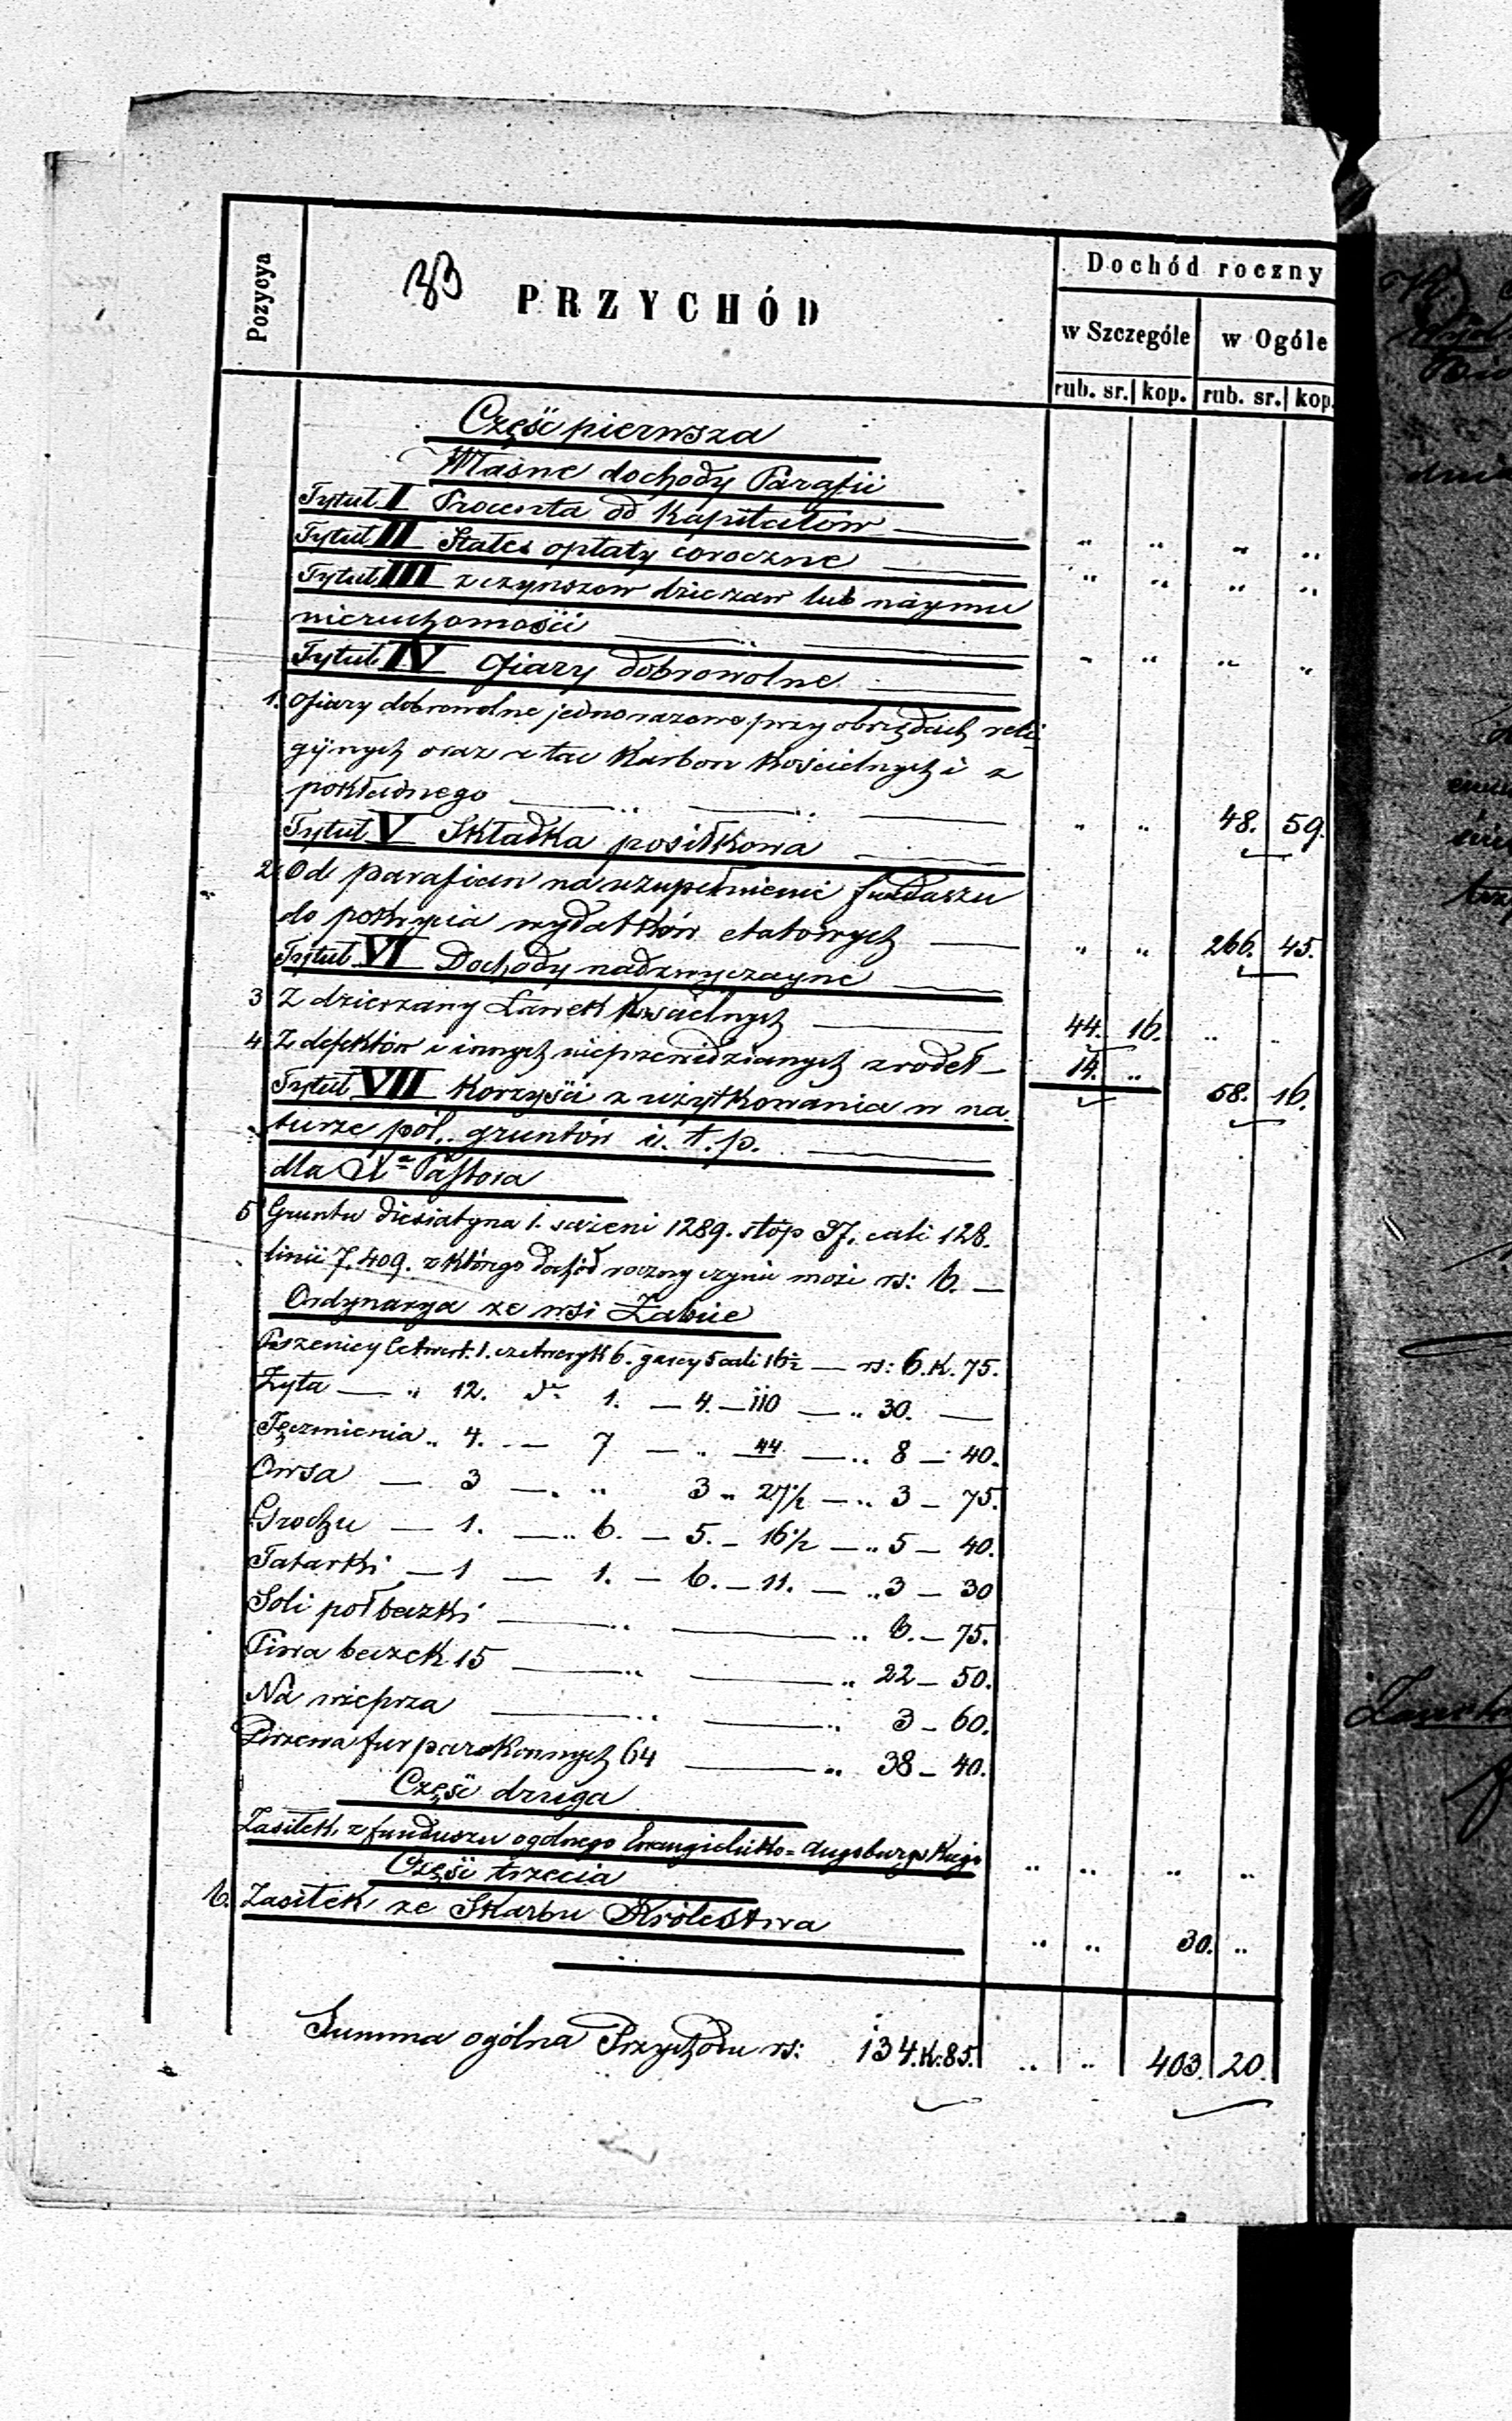 Pozycya
33
PRZYCHÓD
Dochód roczny
w Szczególe
w Ogóle
rub. sr. kop. rub. sr. kop.
Część pierwsza
Własne dochody Parafii
Tytuł I Procenta od Kapitałów — „ „ „ „
Tytuł II Stałe opłaty coroczne — „ „ „ „
Tytuł III z czynszow dzierzaw lub naymu
nieruchomości — „ — „ „ „ „
Tytuł IV Ofiary dobrowolne —
1. Ofiary dobrowolne jednorazowe przy obrzędach reli-
gijnych oraz z tac Karbon Kościelnych i z
pokładnego — „ — „ — „ „ 48. 59.
Tytuł V Składka posiłkowa —
2. Od parafian na uzupełnienie funduszu
do pokrycia wydatków etatowych — „ „ 266. 45.
Tytuł VI Dochody nadzwyczayne —
3 Z dzierzawy Ławek Kościelnych — 44. 16. „ „
4 Z defektów i innych nieprzewidzianych zrodeł — 14. „ 58. 16.
Tytuł VII Korzyści z użytkowania w na-
turze pól, gruntów i. t. p. —
dla Xa Pastora
5 Gruntu diesiatyna 1. sażeni 1289. stóp 37. cali 128.
linii 7.409. z którego dochód roczny czynić może rs: 6. —
Ordynarya ze wsi Żabie
Pszenicy Cetwert. 1. czetweryk 6. garcy 5 cali 16½ — rs: 6. K. 75.
Żyta — „ 12. do 1. — 4. — 110 — „ 30. —
Jęczmienia „ 4. — 7 — „ 44 — „ 8 — 40.
Owsa — 3 — „ 3 „ 27½ — „ 3 — 75.
Grochu — 1. — „ 6. — 5. — 16½ — „ 5 — 40.
Tatarki — 1 — 1. — 6. — 11. — „ 3 — 30
Soli poł beczki — „ — „ 6. — 75.
Piwa beczek 15 — „ — „ 22 — 50.
Na wieprza — „ — „ 3 — 60.
Drzewa fur parokonnych 64 — „ 38 — 40.
Część druga
Zasiłek z funduszu ogolnego Ewangielicko=Augsburgskiego „ „ „ „
Część trzecia
6. Zasiłek ze Skarbu Królestwa „ „ 30. „
Summa ogólna Przychodu rs: 134. K: 85. „ „ 403. 20.